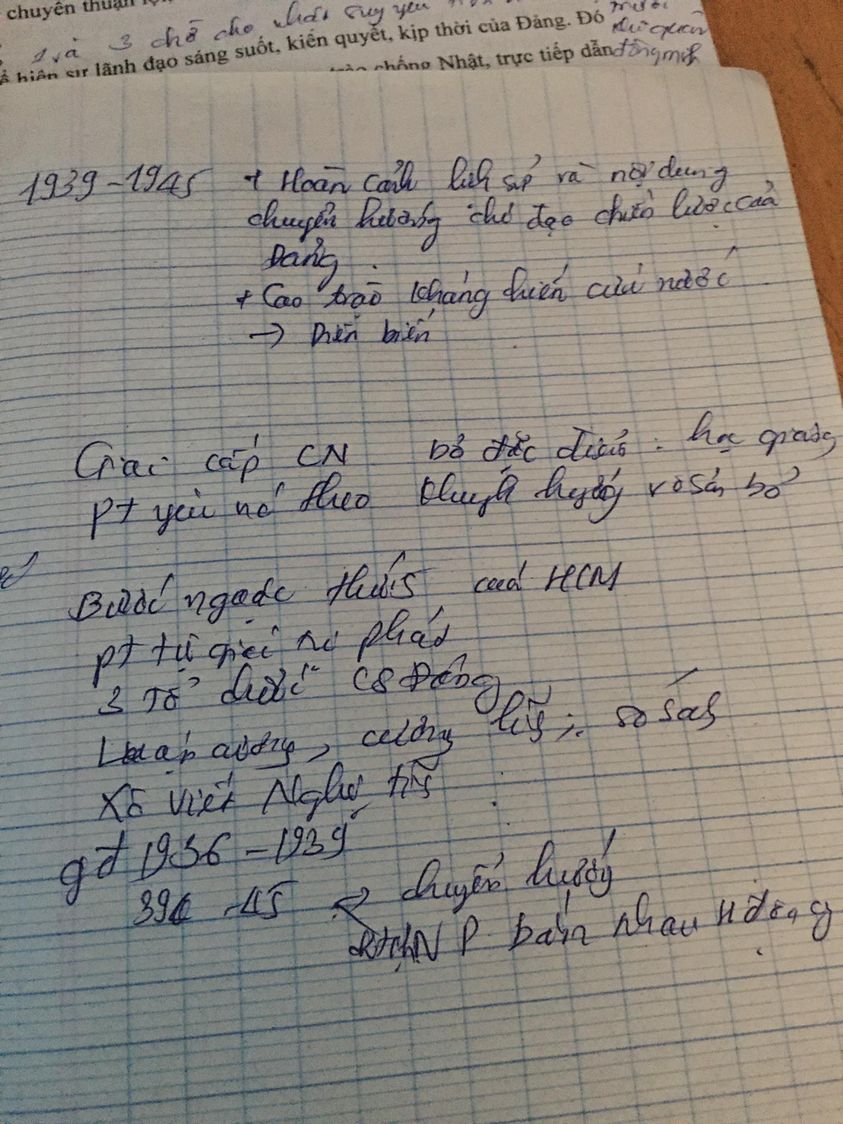 chuyên thuận
2 và 3 chỗ cho nhau suy yếu
sự lãnh đạo sáng suốt, kiên quyết, kịp thời của Đảng. Đó
chống Nhật, trực tiếp dẫn
đồng minh
1939-1945 + Hoàn cảnh lịch sử và nội dung
chuyển hướng chỉ đạo chiến lược của
Đảng.
+ Cao trào kháng chiến cứu nước
→ Diễn biến
Giai cấp CN bỏ đặc điểm:
pt yêu nc theo khuynh hướng vô sản bỏ
Bước ngoặc thứ 5 của HCM
pt tự
3 Tổ chức CS Đông
Luận cương, cương lĩnh; so sánh
Xô Viết Nghệ Tĩnh
gđ 1936-1939
39 -45 chuyển hướng
N P bắn nhau